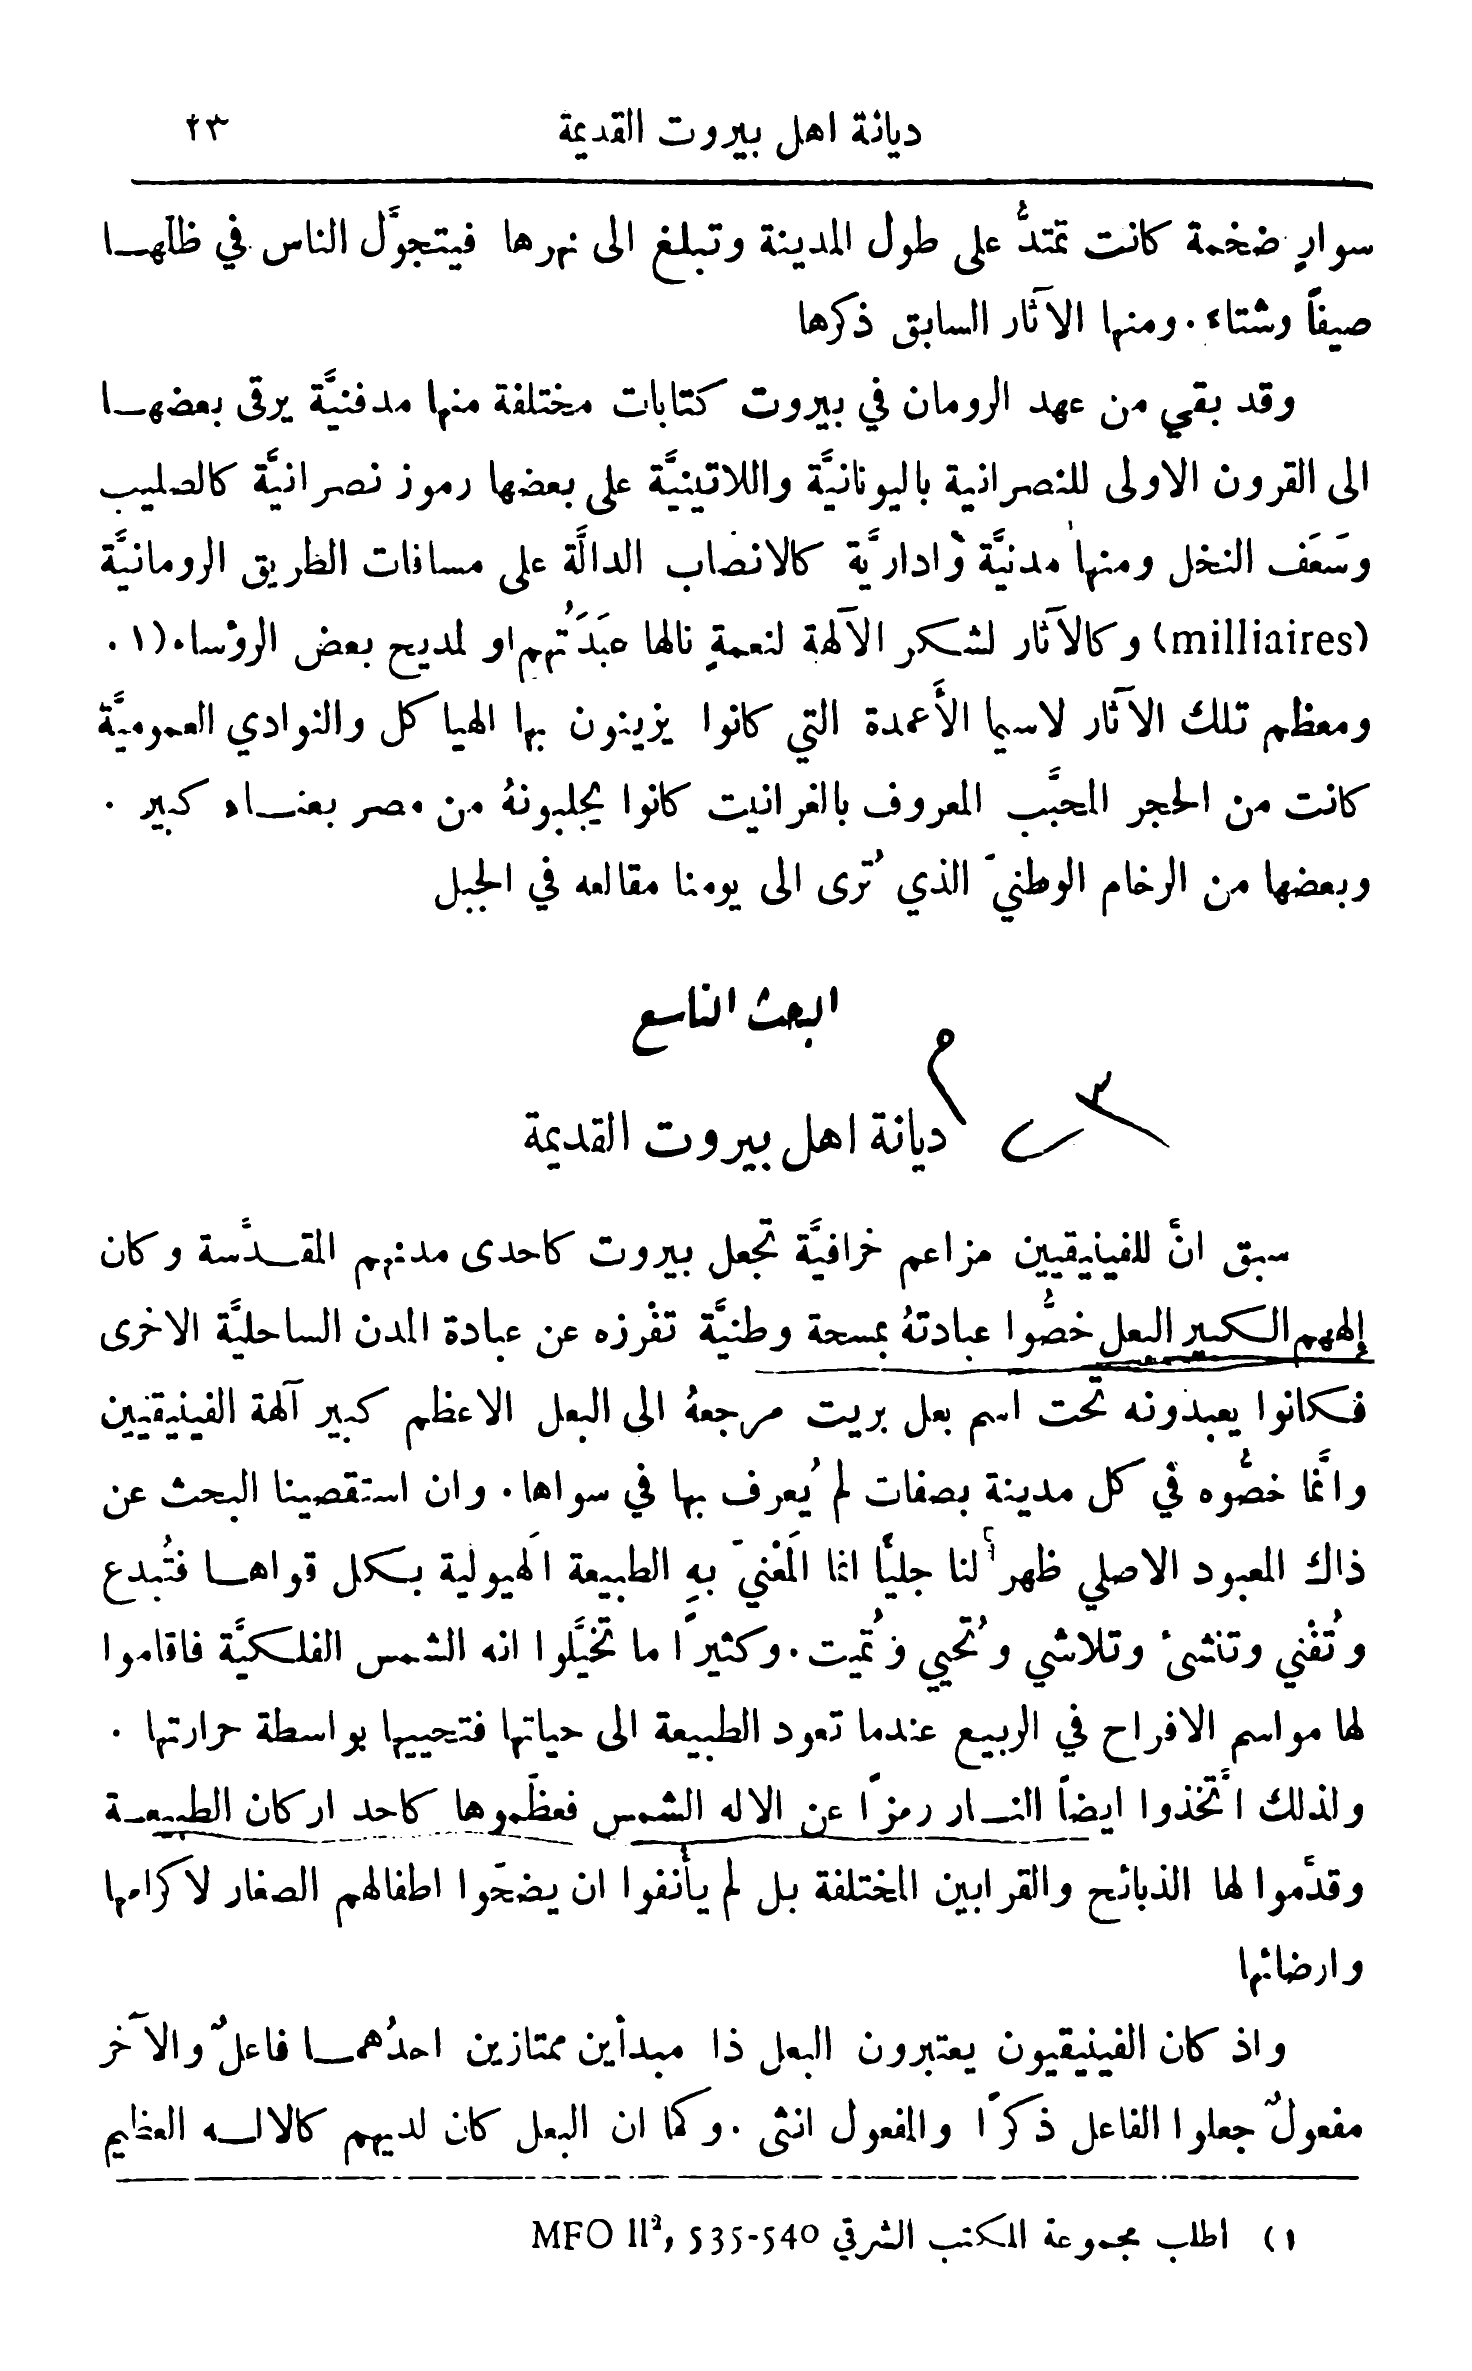 ديانة اهل بيروت القديمة ٢٣
سوارٍ ضخمة كانت تمتدُّ على طول المدينة وتبلغ الى نهرها فيتجوَّل الناس في ظلّهـا
صيفاً وشتاء . ومنها الآثار السابق ذكرها
وقد بقي من عهد الرومان في بيروت كتابات مختلفة منها مدفنيَّة يرقى بعضهـا
الى القرون الاولى للنصرانية باليونانيَّة واللاتينيَّة على بعضها رموز نصرانيَّة كالصليب
وسَعَف النخل ومنها مدنيَّة وادارَّية كالانصاب الدالَّة على مسافات الطريق الرومانيَّة
(milliaires) وكالآثار لشكر الآلهة لنعمةٍ نالها عبَدَتُهم او لمديح بعض الرؤساء (١ .
ومعظم تلك الآثار لاسيما الأَعمدة التي كانوا يزينون بها الهياكل والنوادي العموميَّة
كانت من الحجر المحبَّب المعروف بالغرانيت كانوا يجلبونهُ من مصر بعنـاء كبير .
وبعضها من الرخام الوطنيّ الذي تُرى الى يومنا مقالعه في الجبل
البحث التاسع
٣ م
ديانة اهل بيروت القديمة
سبق انَّ للفينيقيين مزاعم خرافيَّة تجعل بيروت كاحدى مدنهم المقـدَّسة وكان
إلههم الكبير البعل خصُّوا عبادتهُ بمسحة وطنيَّة تفْرزه عن عبادة المدن الساحليَّة الاخرى
فكانوا يعبدونه تحت اسم بعل بريت مرجعهُ الى البعل الاعظم كبير آلهة الفينيقيين
وانَّما خصُّوه في كل مدينة بصفات لم يُعرف بها في سواها . وان استقصينا البحث عن
ذاك المعبود الاصلي ظهر لنا جليًّا انما المَعْنيّ بهِ الطبيعة الهَيولية بكل قواهـا فتُبدع
وتُفْني وتنشئ وتلاشي وتُحيي وتُميت . وكثيرًا ما تخيَّلوا انه الشمس الفلكيَّة فاقاموا
لها مواسم الافراح في الربيع عندما تعود الطبيعة الى حياتها فتحييها بواسطة حرارتها .
ولذلك اتَّخذوا ايضاً النـار رمزًا عن الاله الشمس فعظَّموها كاحد اركان الطبيعـة
وقدَّموا لها الذبائح والقرابين المختلفة بل لم يأْنفوا ان يضحّوا اطفالهم الصغار لاكرامها
وارضائها
واذ كان الفينيقيون يعتبرون البعل ذا مبدأين ممتازين احدُهمـا فاعلٌ والآخر
مفعولٌ جعلوا الفاعل ذكرًا والمفعول انثى . وكما ان البعل كان لديهم كالالـه العظيم
١) اطلب مجموعة المكتب الشرقي MFO II², 535-540